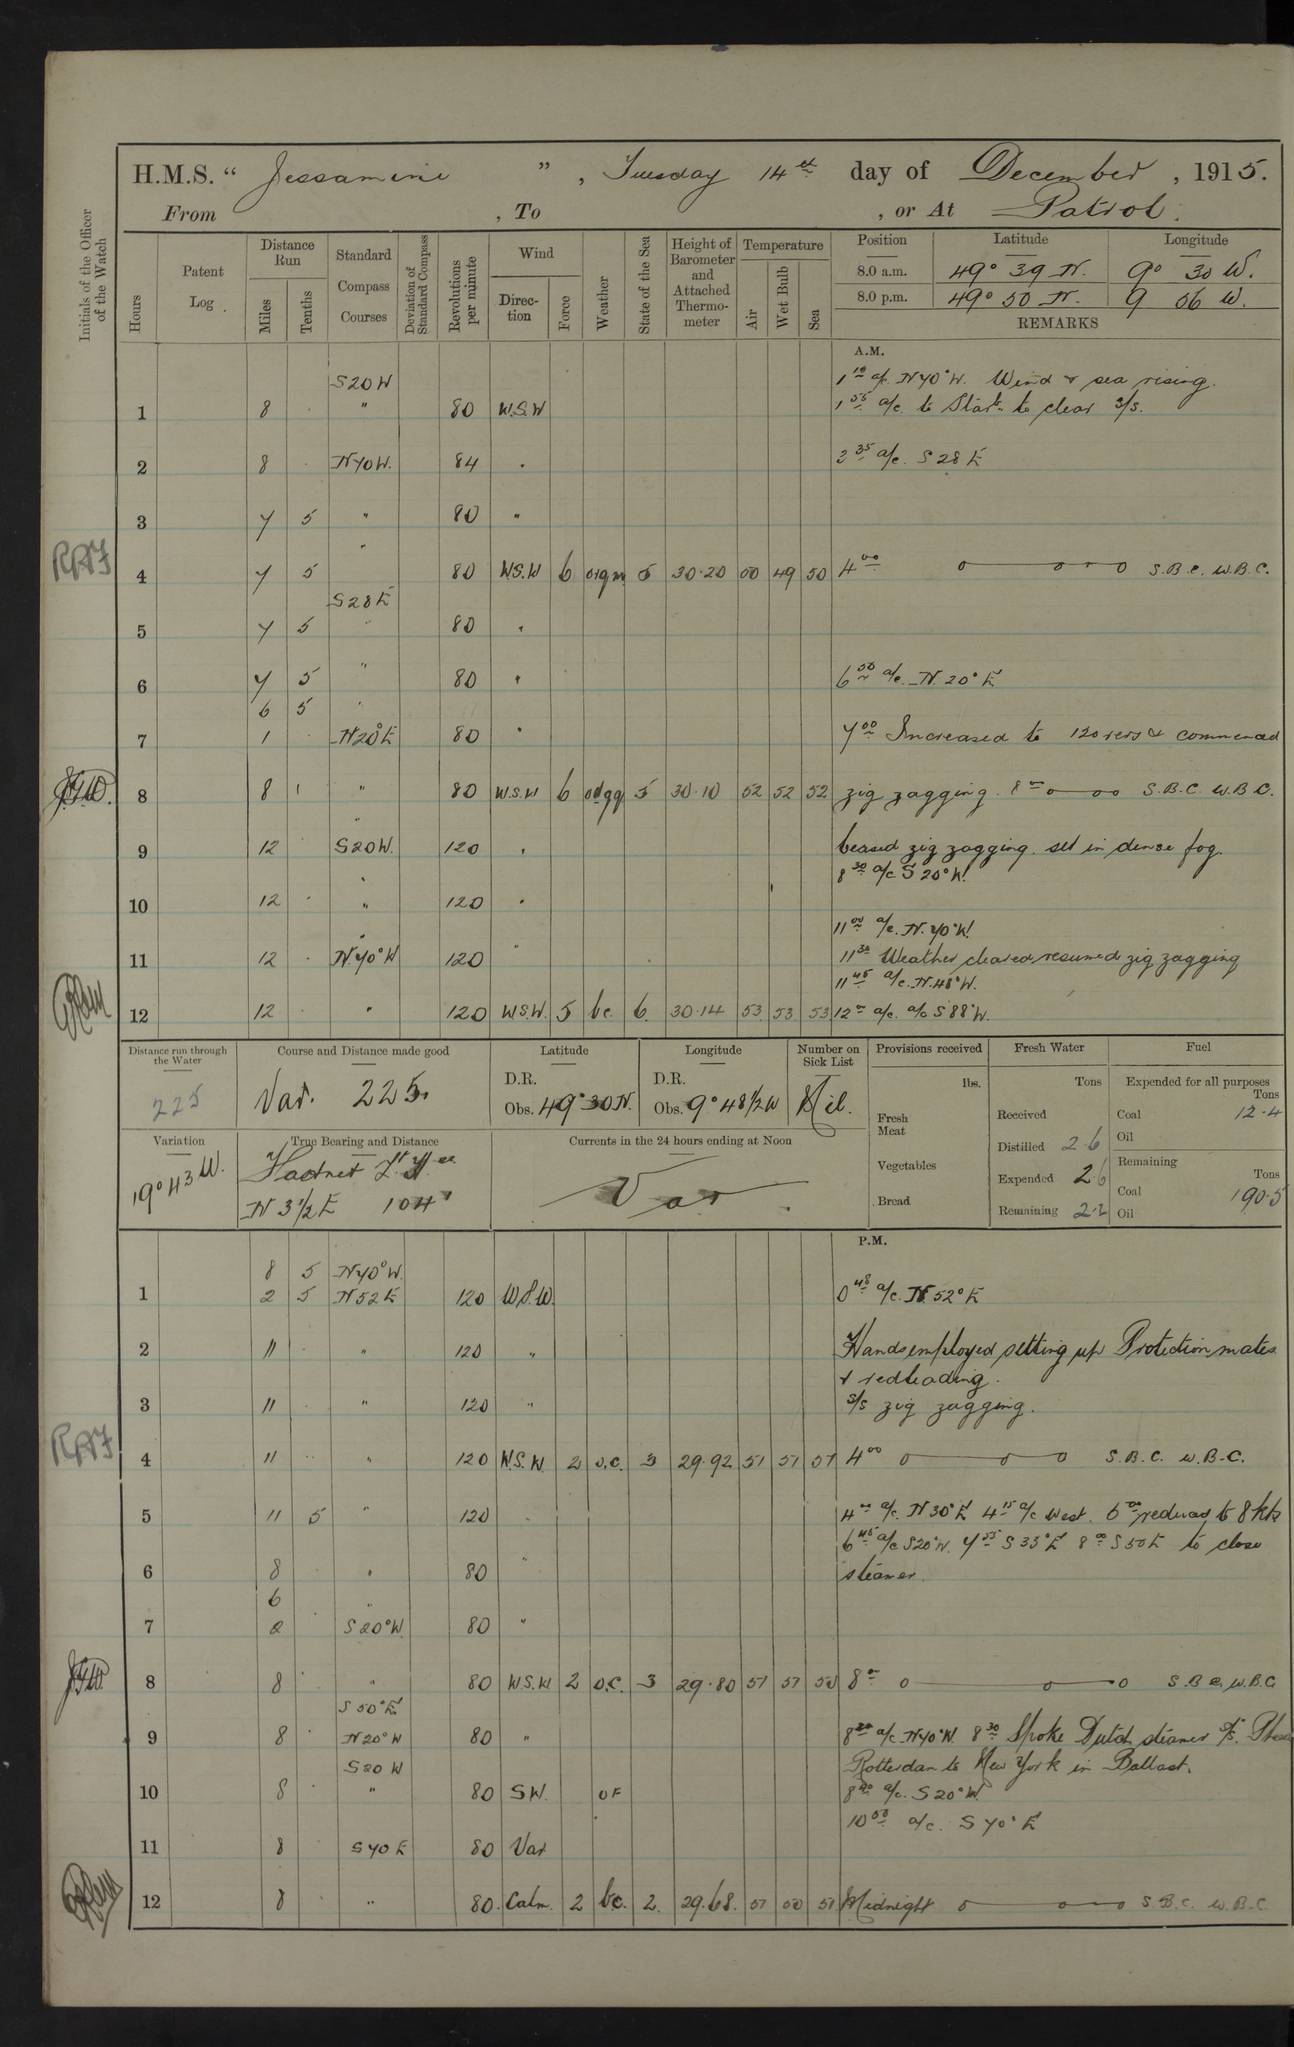 H.M.S. “ Jessamine ”, Tuesday 14th day of December, 1915.
From , To , or At Patrol.
Initials of the Officer of the Watch
Hours
Patent Log.
Distance Run
Miles
Tenths
Standard Compass Courses
Deviation of Standard Compass
Revolutions per minute
Wind
Direction
Force
Weather
State of the Sea
Height of Barometer and Attached Thermometer
Temperature
Air
Wet Bulb
Sea
Position Latitude Longitude
8.0 a.m. 49° 39 N. 9° 30 W.
8.0 p.m. 49° 50 N. 9 06 W.
REMARKS
A.M.
S20W 1 10 a/c N70°W. Wind & sea rising.
1 8 " 80 W.S.W 1 55 a/c to Starb. to clear S/S.
2 8 N70W. 84 " 3 35 a/c. S28E
3 7 5 " 80 "
4 7 5 " 80 W.S.W 6 5 30.20 49 50 4 00 S.B.C. W.B.C.
S28E
5 7 5 " 80 "
6 7 5 " 80 " 6 50 a/c. N.20°E
6 5 "
7 1 N20°E 80 " 7 00 Increased to 120 revs & commenced
8 8 " 80 W.S.W 6 5 30.10 52 52 52 zig zagging. 8 S.B.C. W.B.C.
9 12 S20W. 120 " Ceased zig zagging. set in dense fog.
8 30 a/c S20°W.
10 12 " 120 "
11 00 a/c. N.70°W.
11 12 N.70°W 120 " 11 30 Weather cleared, resumed zig zagging
11 45 a/c. N.48°W.
12 12 " 120 W.S.W. 5 bc. 6. 30.14 53 53 53 12 a/c. S88°W.
Distance run through the Water
225
Course and Distance made good
Var. 225.
Latitude
D.R.
Obs. 49°30N.
Longitude
D.R.
Obs. 9°48½W
Number on Sick List
Nil.
Provisions received
lbs.
Fresh Meat
Vegetables
Bread
Fresh Water
Tons
Received
Distilled 2.6
Expended 2.6
Remaining 2.2
Fuel
Expended for all purposes
Tons
Coal 12.4
Oil
Remaining
Tons
Coal 190.5
Oil
Variation
19°43W.
True Bearing and Distance
N3½E 104'
Currents in the 24 hours ending at Noon
Var.
P.M.
8 5 N70°W.
1 2 5 N52E 120 W.S.W. 0 48 a/c. N52°E
2 11 " 120 " Hands employed setting up Protection mats
& redleading.
3 11 " 120 " S/S zig zagging.
4 11 " 120 W.S.W. 2 o.c. 3 29.92 51 51 51 4 00 S.B.C. W.B.C.
5 11 5 " 120 " 4 a/c. N30°E 4 15 a/c West. 6 00 reduced to 8 kts
6 45 a/c S20°W. 7 55 S35°E 8 00 S50E to close
6 8 " 80 " steamer.
6 "
7 2 S20°W. 80 "
8 8 " 80 W.S.W 2 o.c. 3 29.80 51 51 50 8 S.B.C. W.B.C
S50°E.
9 8 N20°W 80 " 8 20 a/c. N70°W. 8 30 Spoke Dutch steamer S/S.
S20W Rotterdam to New York in Ballast.
10 8 " 80 SW. OF 8 40 a/c. S20°W.
10 00 a/c. S70°E
11 8 S70E 80 Var
12 8 " 80. Calm. 2 bc. 2. 29.68. 51 50 51 Midnight S.B.C. W.B.C